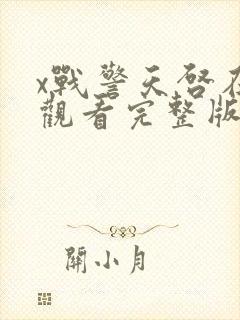 x戰警天啓在
觀看完整版
關小月